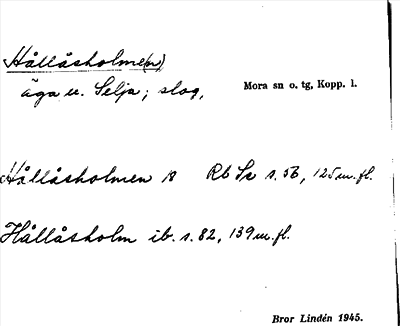 Hållåsholme(n)
äga u. Selja; slog,
Mora sn o. tg, Kopp. l.
Hållåsholmen 18 Rb Se s. 56, 125 m.fl.
Hållåsholm ib. s. 82, 139 m.fl.
Bror Lindén 1945.